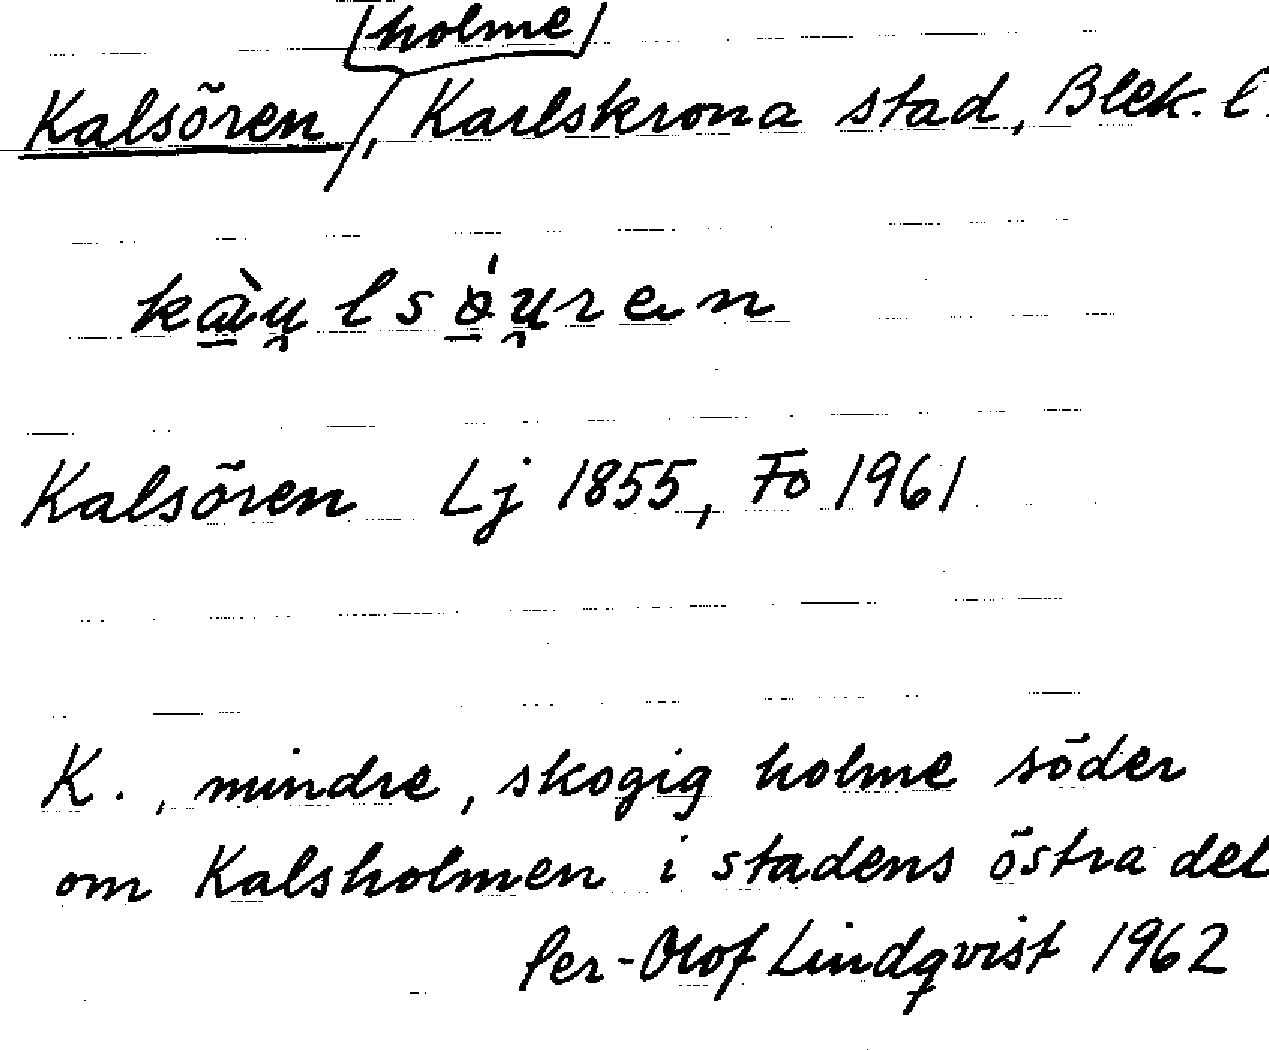 [holme]
Kalsören, Karlskrona stad, Blek. l.
Kalsören Lj 1855, Fo 1961
K., mindre, skogig holme söder
om Kalsholmen i stadens östra del
Per-Olof Lindqvist 1962